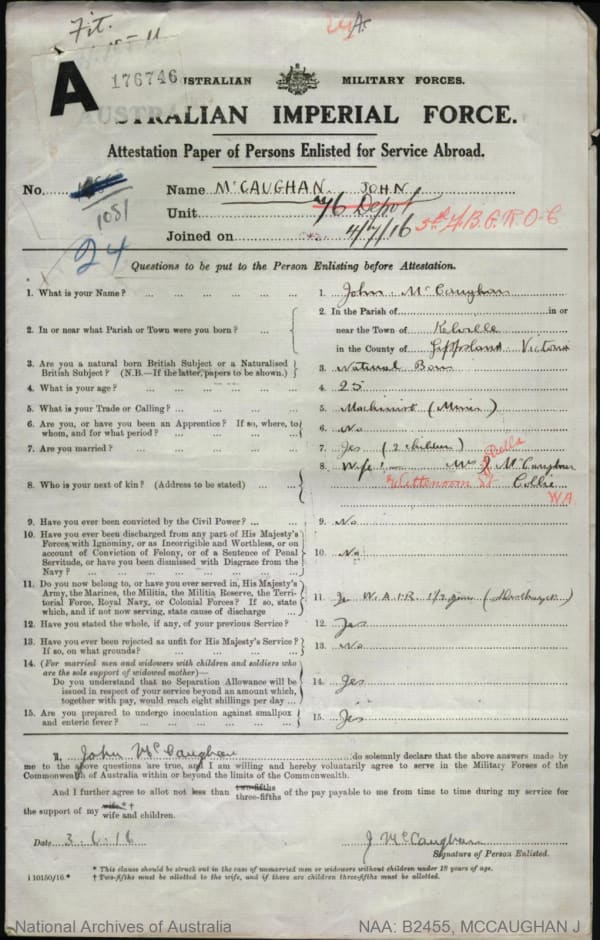 Fit.
A 176746
AUSTRALIAN MILITARY FORCES.
AUSTRALIAN IMPERIAL FORCE.
Attestation Paper of Persons Enlisted for Service Abroad.
No. 1081 Name McCAUGHAN JOHN
24 Unit 76 Depot 5th/4. B.G.R.O.C
Joined on 4/7/16
Questions to be put to the Person Enlisting before Attestation.
1. What is your Name? 1. John McCaughan
2. In or near what Parish or Town were you born? 2. In the Parish of in or
near the Town of
in the County of Gippsland Victoria
3. Are you a natural born British Subject or a Naturalised
British Subject? (N.B.—If the latter, papers to be shown.) 3. Natural Born
4. What is your age? 4. 25
5. What is your Trade or Calling? 5. Machinist (Mines)
6. Are you, or have you been an Apprentice? If so, where, to
whom, and for what period? 6. No
7. Are you married? 7. Yes (2 children)
8. Who is your next of kin? (Address to be stated) 8. Wife Mrs J. Bella McCaughan
Wittenoom St Collie
W.A.
9. Have you ever been convicted by the Civil Power? 9. No
10. Have you ever been discharged from any part of His Majesty's
Forces, with Ignominy, or as Incorrigible and Worthless, or on
account of Conviction of Felony, or of a Sentence of Penal
Servitude, or have you been dismissed with Disgrace from the
Navy? 10. No
11. Do you now belong to, or have you ever served in, His Majesty's
Army, the Marines, the Militia, the Militia Reserve, the Terri-
torial Force, Royal Navy, or Colonial Forces? If so, state
which, and if not now serving, state cause of discharge 11. W.A.I.R. 1½
12. Have you stated the whole, if any, of your previous Service? 12. Yes
13. Have you ever been rejected as unfit for His Majesty's Service?
If so, on what grounds? 13. No
14. (For married men and widowers with children and soldiers who
are the sole support of widowed mother)—
Do you understand that no Separation Allowance will be
issued in respect of your service beyond an amount which,
together with pay, would reach eight shillings per day 14. Yes
15. Are you prepared to undergo inoculation against smallpox
and enteric fever? 15. Yes
I, John McCaughan do solemnly declare that the above answers made by
me to the above questions are true, and I am willing and hereby voluntarily agree to serve in the Military Forces of the
Commonwealth of Australia within or beyond the limits of the Commonwealth.
And I further agree to allot not less than two-fifths three-fifths of the pay payable to me from time to time during my service for
the support of my wife*† wife and children.
Date 3.6.16 J McCaughan
Signature of Person Enlisted.
* This clause should be struck out in the case of unmarried men or widowers without children under 18 years of age.
i 10150/16.* † Two-fifths must be allotted to the wife, and if there are children three-fifths must be allotted.
National Archives of Australia NAA: B2455, MCCAUGHAN J